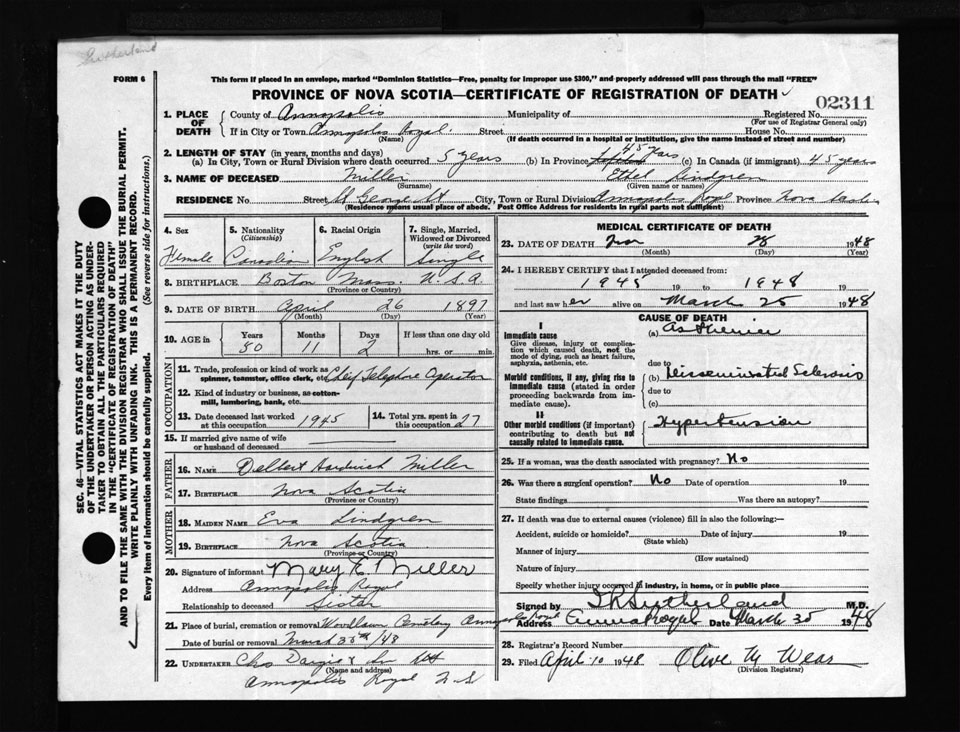 Sutherland
FORM 6
This form if placed in an envelope, marked "Dominion Statistics—Free, penalty for improper use $300," and properly addressed will pass through the mail "FREE"
PROVINCE OF NOVA SCOTIA—CERTIFICATE OF REGISTRATION OF DEATH
02311
1. PLACE OF DEATH { County of Annapolis Municipality of Registered No.
(For use of Registrar General only)
If in City or Town Annapolis Royal. Street House No.
(Name) (If death occurred in a hospital or institution, give the name instead of street and number)
2. LENGTH OF STAY (in years, months and days)
(a) In City, Town or Rural Division where death occurred 5 years (b) In Province 45 years (c) In Canada (if immigrant) 45 years
3. NAME OF DECEASED Miller Ethel Lindgren
(Surname) (Given name or names)
RESIDENCE No. Street St George St City, Town or Rural Division Annapolis Royal Province Nova Scotia
(Residence means usual place of abode. Post Office Address for residents in rural parts not sufficient)
4. Sex 5. Nationality (Citizenship) 6. Racial Origin 7. Single, Married, Widowed or Divorced (write the word)
Female Canadian English Single
8. BIRTHPLACE Boston Mass. U.S.A.
(Province or Country)
9. DATE OF BIRTH April 26 1897
(Month) (Day) (Year)
10. AGE in Years Months Days If less than one day old
50 11 2 hrs. or min.
OCCUPATION
11. Trade, profession or kind of work as spinner, teamster, office clerk, etc. Chief Telephone Operator
12. Kind of industry or business, as cotton-mill, lumbering, bank, etc.
13. Date deceased last worked at this occupation 1945 14. Total yrs. spent in this occupation 27
15. If married give name of wife or husband of deceased
FATHER
16. NAME Delbert Hardwick Miller
17. BIRTHPLACE Nova Scotia
(Province or Country)
MOTHER
18. MAIDEN NAME Eva Lindgren
19. BIRTHPLACE Nova Scotia
(Province or Country)
20. Signature of informant Mary E. Miller
Address Annapolis Royal
Relationship to deceased Sister
21. Place of burial, cremation or removal Woodlawn Cemetery Annapolis Royal
Date of burial or removal March 30th /48
22. UNDERTAKER Chs Dargie & Son
(Name and address)
Annapolis Royal N.S
MEDICAL CERTIFICATE OF DEATH
23. DATE OF DEATH Mar 28 1948
(Month) (Day) (Year)
24. I HEREBY CERTIFY that I attended deceased from:
1945 19 to 1948 19
and last saw her alive on March 25 1948
CAUSE OF DEATH
I
Immediate cause (a) Asthenia
Give disease, injury or complication which caused death, not the mode of dying, such as heart failure, asphyxia, asthenia, etc.
due to
Morbid conditions, if any, giving rise to immediate cause (stated in order proceeding backwards from immediate cause).
(b) Disseminated Sclerosis
due to
(c)
II
Other morbid conditions (if important) contributing to death but not causally related to immediate cause.
Hypertension
25. If a woman, was the death associated with pregnancy? No
26. Was there a surgical operation? No Date of operation 19
State findings Was there an autopsy?
27. If death was due to external causes (violence) fill in also the following:—
Accident, suicide or homicide? Date of injury 19
(State which)
Manner of injury
(How sustained)
Nature of injury
Specify whether injury occurred in industry, in home, or in public place
Signed by Sutherland M.D.
Address Anna Royal Date March 30 1948
28. Registrar's Record Number
29. Filed April 10 1948 Olive M Wear
(Division Registrar)
SEC. 46—VITAL STATISTICS ACT MAKES IT THE DUTY
OF THE UNDERTAKER OR PERSON ACTING AS UNDER-
TAKER TO OBTAIN ALL THE PARTICULARS REQUIRED
IN THE "CERTIFICATE OF REGISTRATION OF DEATH"
AND TO FILE THE SAME WITH THE DIVISION REGISTRAR WHO SHALL ISSUE THE BURIAL PERMIT.
WRITE PLAINLY WITH UNFADING INK. THIS IS A PERMANENT RECORD.
Every item of information should be carefully supplied. (See reverse side for instructions.)